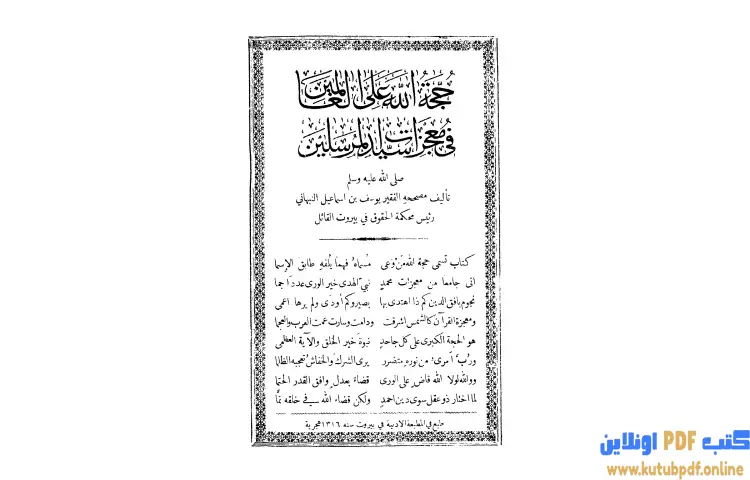 حُجَّةُ اللهِ عَلَى العَالَمِينَ
فِى مُعْجِزَاتِ سَيِّدِ المُرْسَلِينَ
صلى الله عليه وسلم
تأليف مصححه الفقير يوسف بن اسماعيل النبهاني
رئيس محكمة الحقوق في بيروت القائل
كتاب تسمى حجة الله مَنْ وَعى مُسماهُ فهما يُلْفِهِ طابق الإسما
اتى جامعا من معجزات محمدٍ نبيّ الهدى خير الورى عددا جما
نجوم بافق الدين كم ذا اهتدى بها بصير وكم أودى ولم يرها اعمى
ومعجزة القرآن كالشمس اشرقت ودامت وسارت عمت العرب والعجما
هو الحجة الكبرى على كل جاحدٍ نبوة خير الخلق والآية العظمى
ورُبَّ امرىء من نوره متضرر يرى الشرك والخفاش تعجبه الظلما
ووالله لولا الله قاض على الورى قضاء بعدل وافق القدر الحتما
لما اختار ذو عقل سوى دين احمدٍ ولكن قضاء الله في خلقه تمَّا
طبع في المطبعة الادبية في بيروت سنه ١٣١٦ هجرية
كتب PDF اونلاين
www.kutubpdf.online